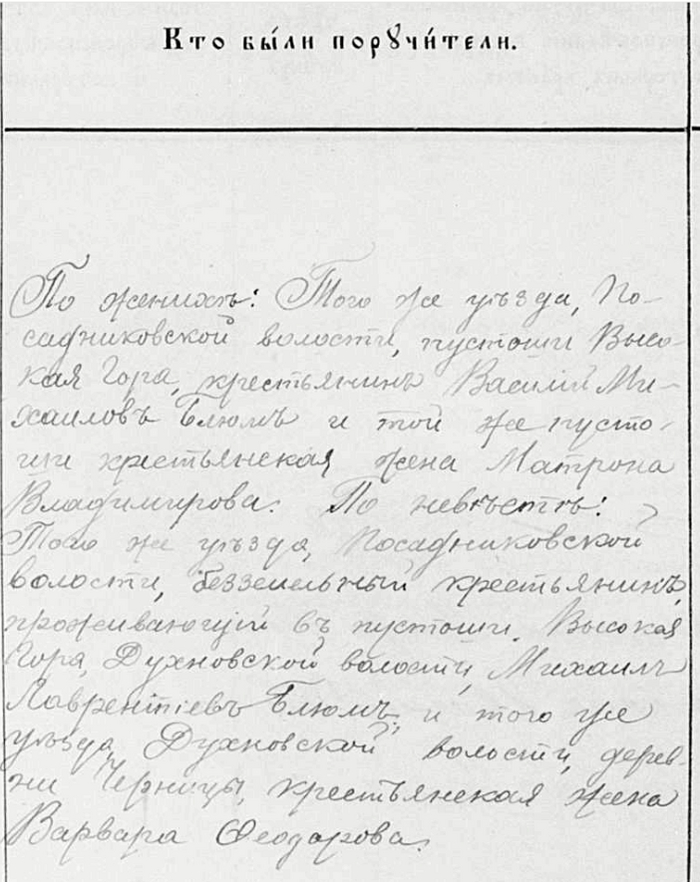 Кто бы́ли порꙋчи́тели.
По женихѣ: Того же уѣзда, По-
садниковской волости, пустоши Высо-
кая Гора, крестьянинъ Василій Ми-
хаиловъ Блюмъ и той же пусто-
ши крестьянская жена Матрона
Владимирова. По невѣстѣ:
Того же уѣзда, Посадниковской
волости, безземельный крестьянинъ,
проживающій въ пустоши. Высокая
Гора, Духновской волости, Михаилъ
Лаврентіевъ Блюмъ, и того же
уѣзда, Духновской волости, дерев-
ни Черницы, крестьянская жена
Варвара Ѳеодорова.